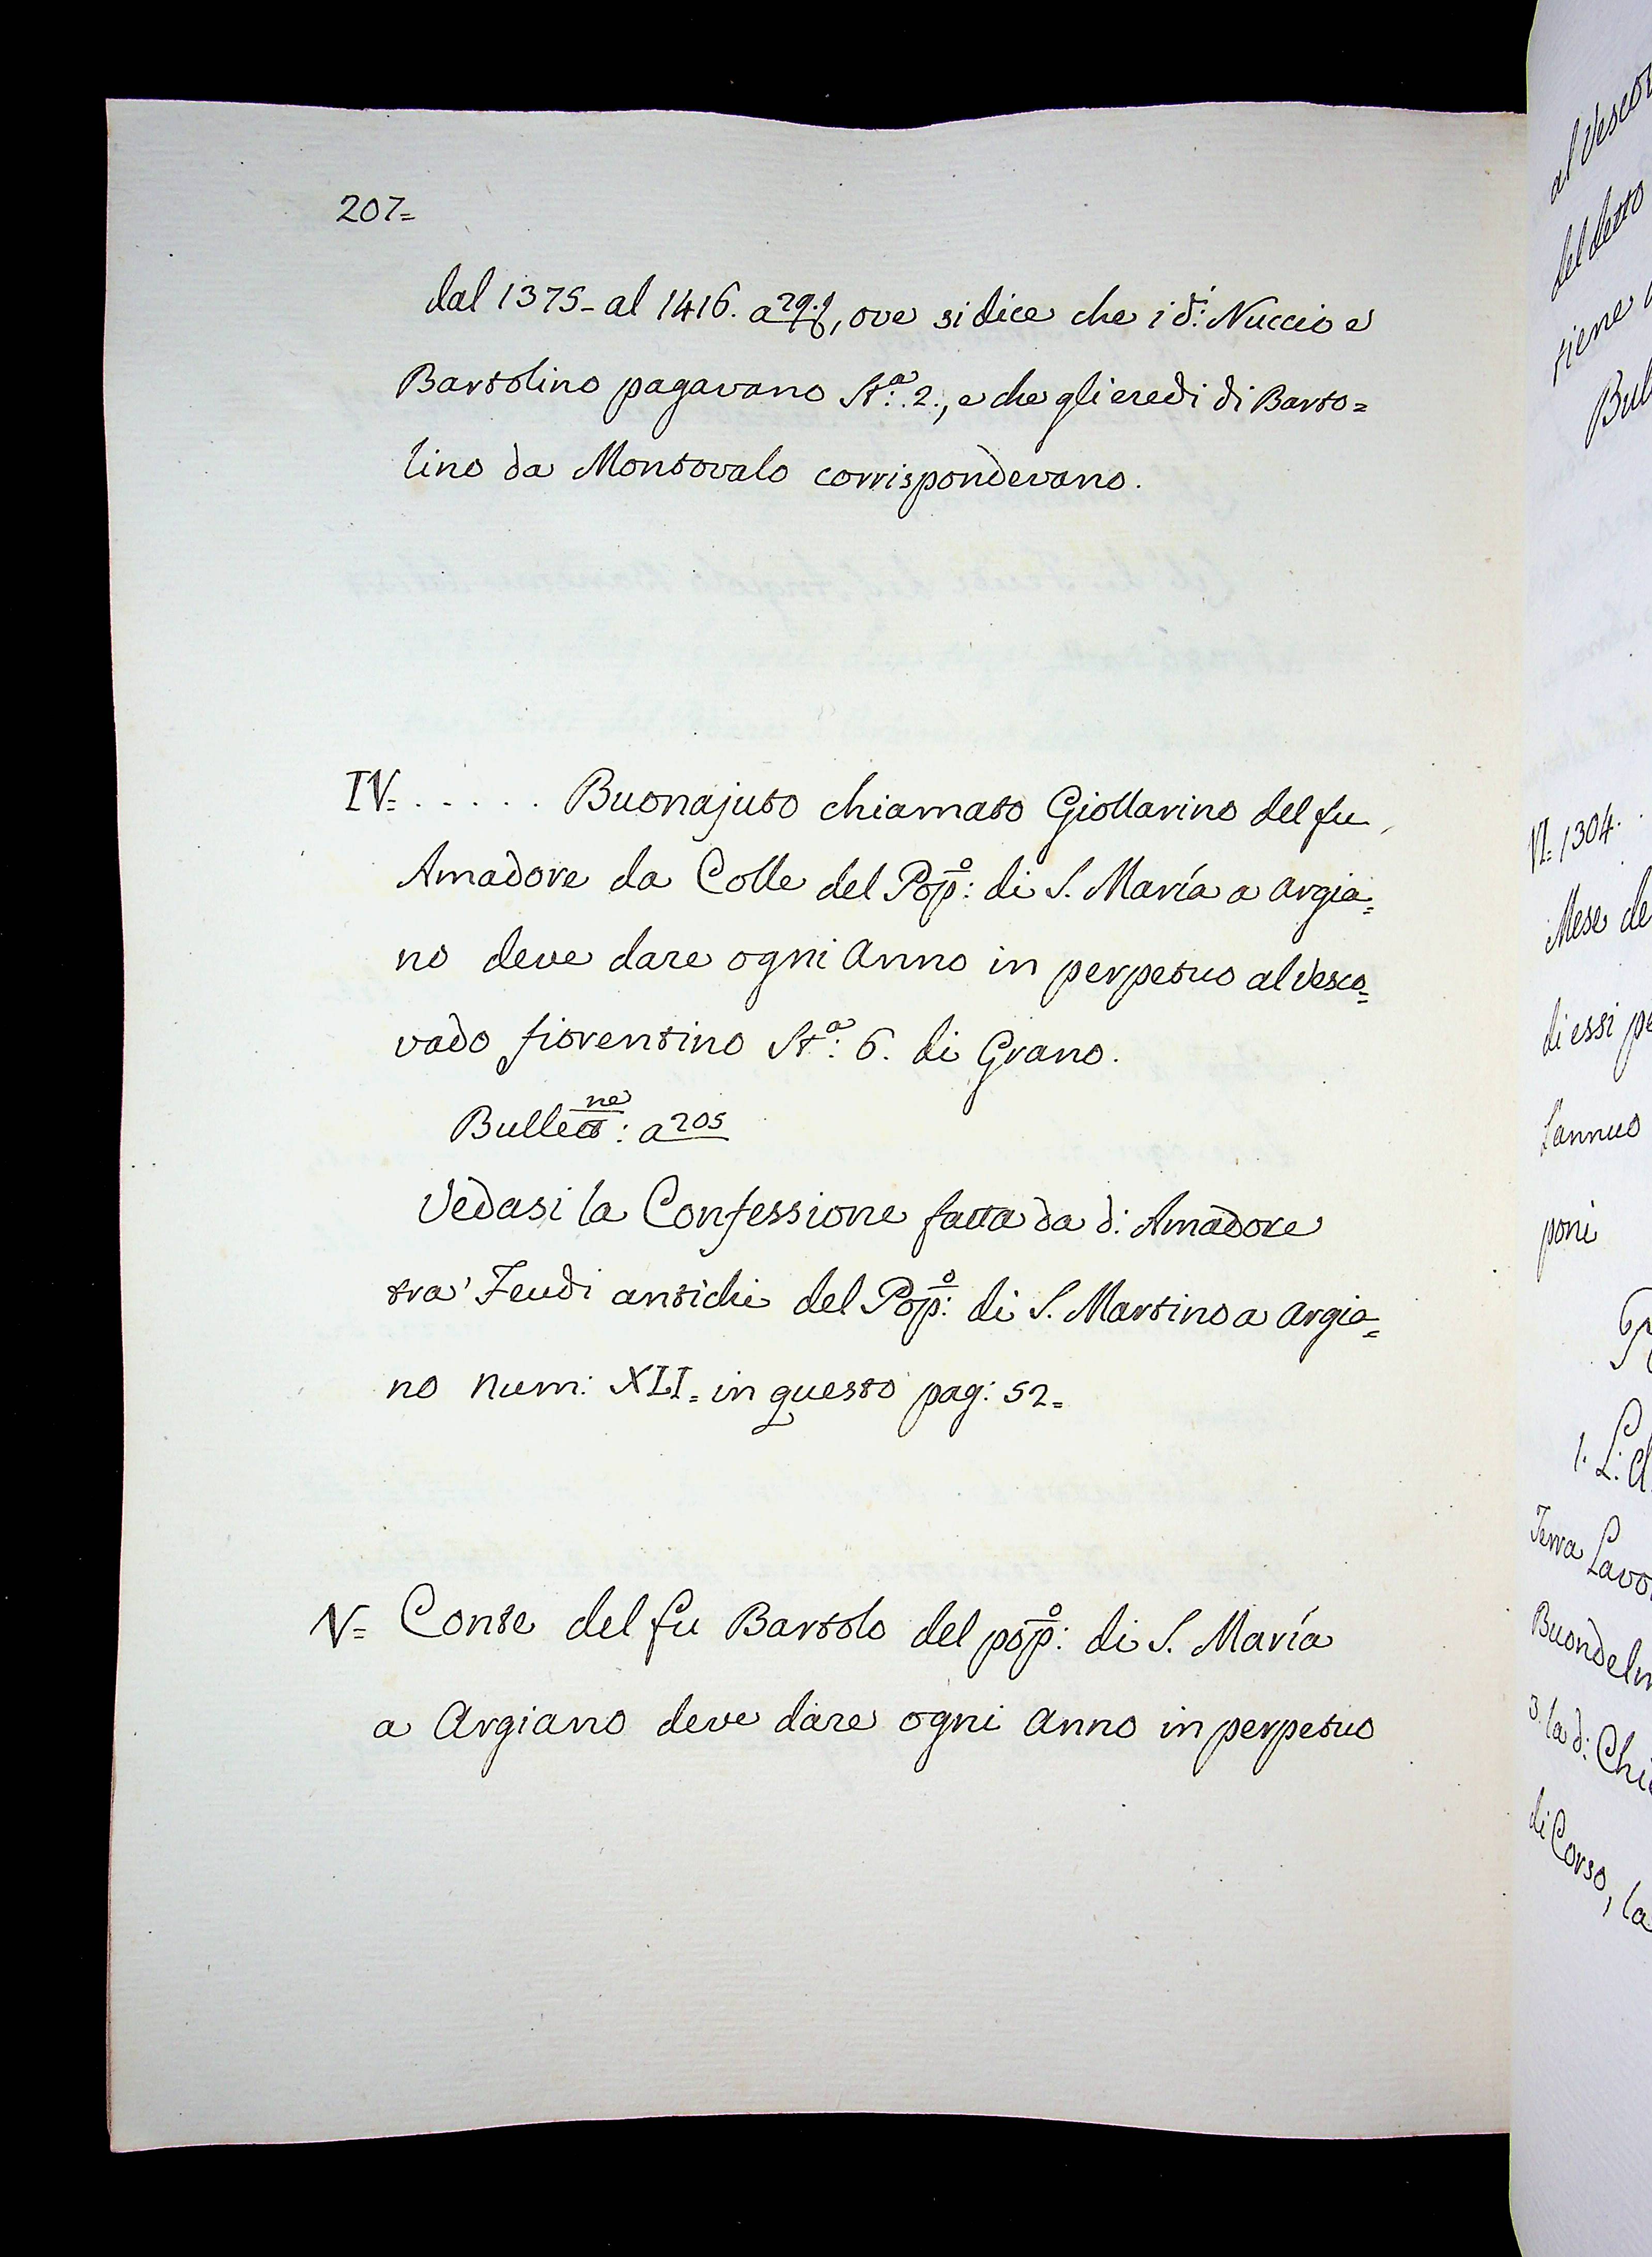 207=
dal 1375- al 1416. a , ove si dice che i d.i: Nuccio e
Bartolino pagavano St.a: 2., e che gli eredi di Barto=
lino da Montovalo corrispondevano.
IV= . . . . . Buonajuto chiamato Giottarino del fu
Amadore da Colle del Pop.o: di S. María a Argia=
no deve dare ogni Anno in perpetuo al Vesco=
vado fiorentino St.a: 6. di Grano.
Bullett.ne: a 205
Vedasi la Confessione fatta da d: Amadore
tra' Feudi antichi del Pop.o: di S. Martino a Argia=
no Num: XLI= in questo pag: 52=
V= Conte del fu Bartolo del pop.o: di S. María
a Argiano deve dare ogni Anno in perpetuo
al Vesco
del detto
tiene
Bul
VI= 1304.
Mese de
di essi pe
L'annuo
poni
1. L: A
Terra Lavo
Buondelm
3. la d: Chie
di Corso, la